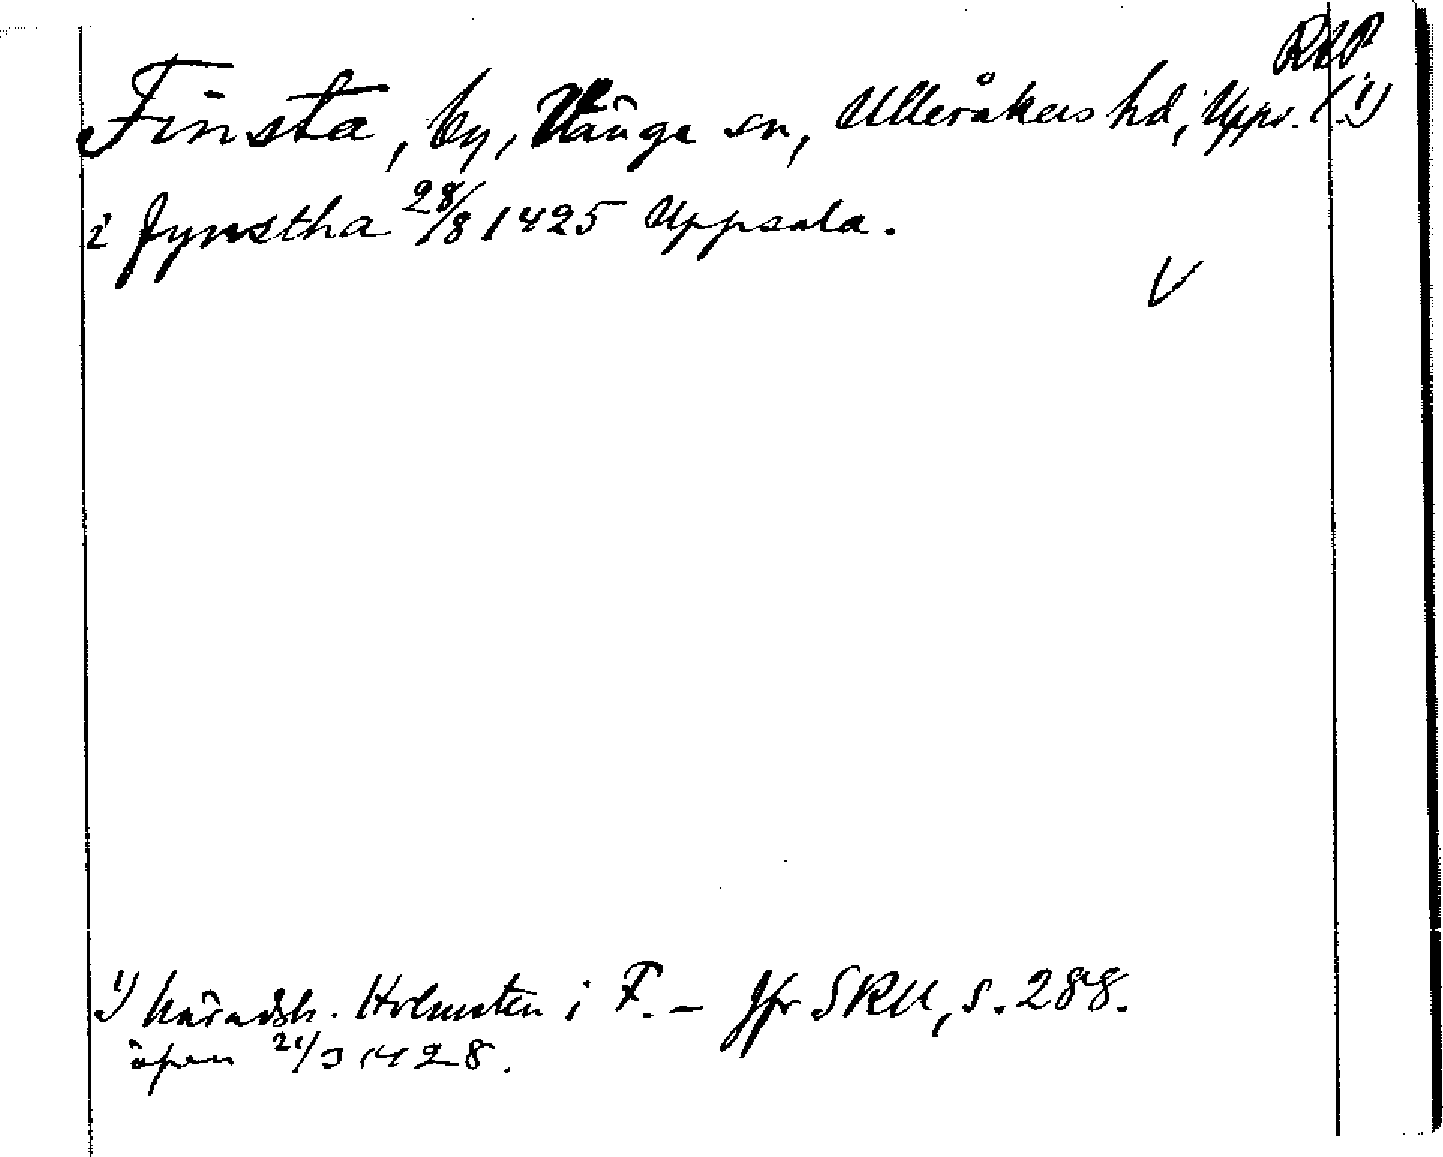 RAP
Finsta, by, Vänge sn, Ulleråkers hd, Upps. l. 1)
i Fynstha 28/8 1425 Uppsala.
V
1) häradsh. Holmsten i F. – Jfr SRU, s. 288.
öpen 21/3 1428.